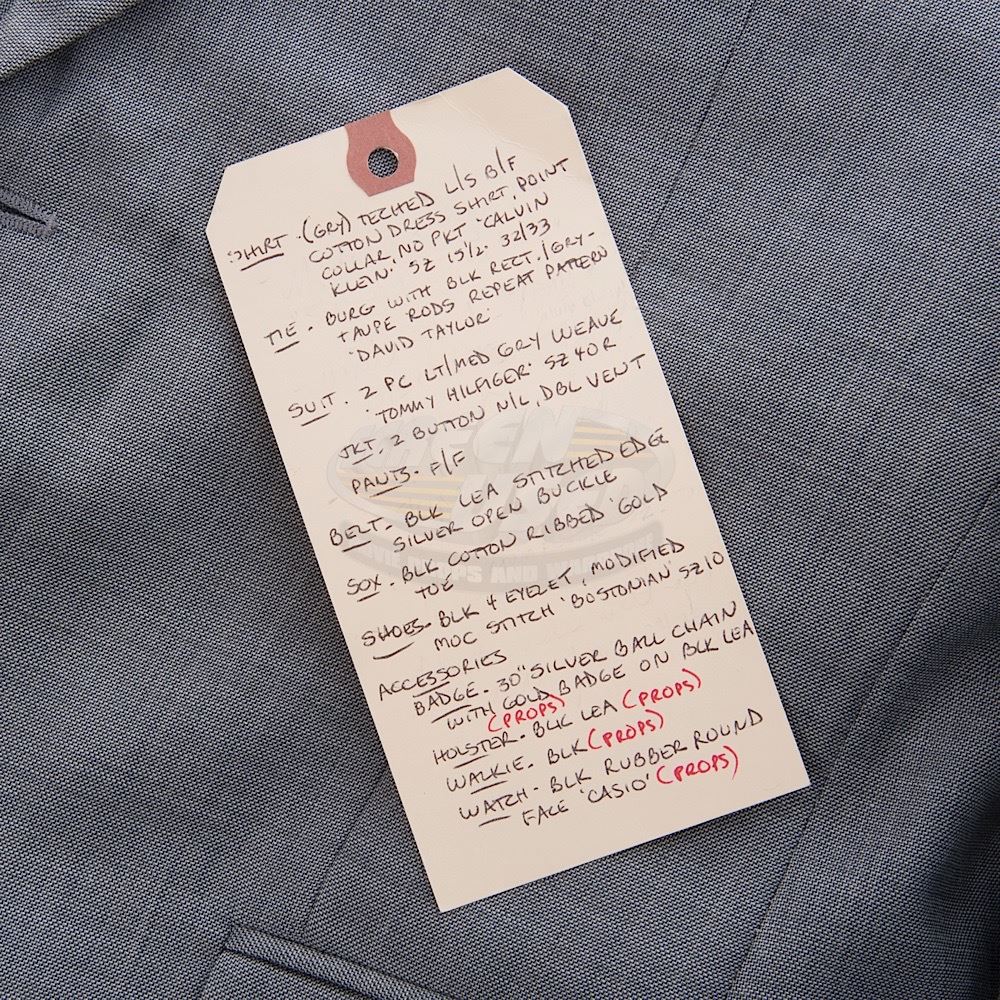 SHIRT - (GRY) TECHED L/S B/F
COTTON DRESS SHIRT, POINT
COLLAR, NO PKT 'CALVIN
KLEIN' SZ 15½ 32/33
TIE - BURG WITH BLK RECT. / GRY-
TAUPE RODS REPEAT PATTERN
'DAVID TAYLOR'
SUIT - 2 PC LT/MED GRY WEAVE
'TOMMY HILFIGER' SZ 40R
JKT - 2 BUTTON N/L, DBL VENT
PANTS - F/F
BELT - BLK LEA STITCHED EDGE
SILVER OPEN BUCKLE
SOX - BLK COTTON RIBBED 'GOLD
TOE
SHOES - BLK 4 EYELET, MODIFIED
MOC STITCH 'BOSTONIAN' SZ 10
ACCESSORIES
BADGE - 30" SILVER BALL CHAIN
WITH GOLD BADGE ON BLK LEA
(PROPS)
HOLSTER - BLK LEA (PROPS)
WALKIE - BLK (PROPS)
WATCH - BLK RUBBER ROUND
FACE 'CASIO' (PROPS)